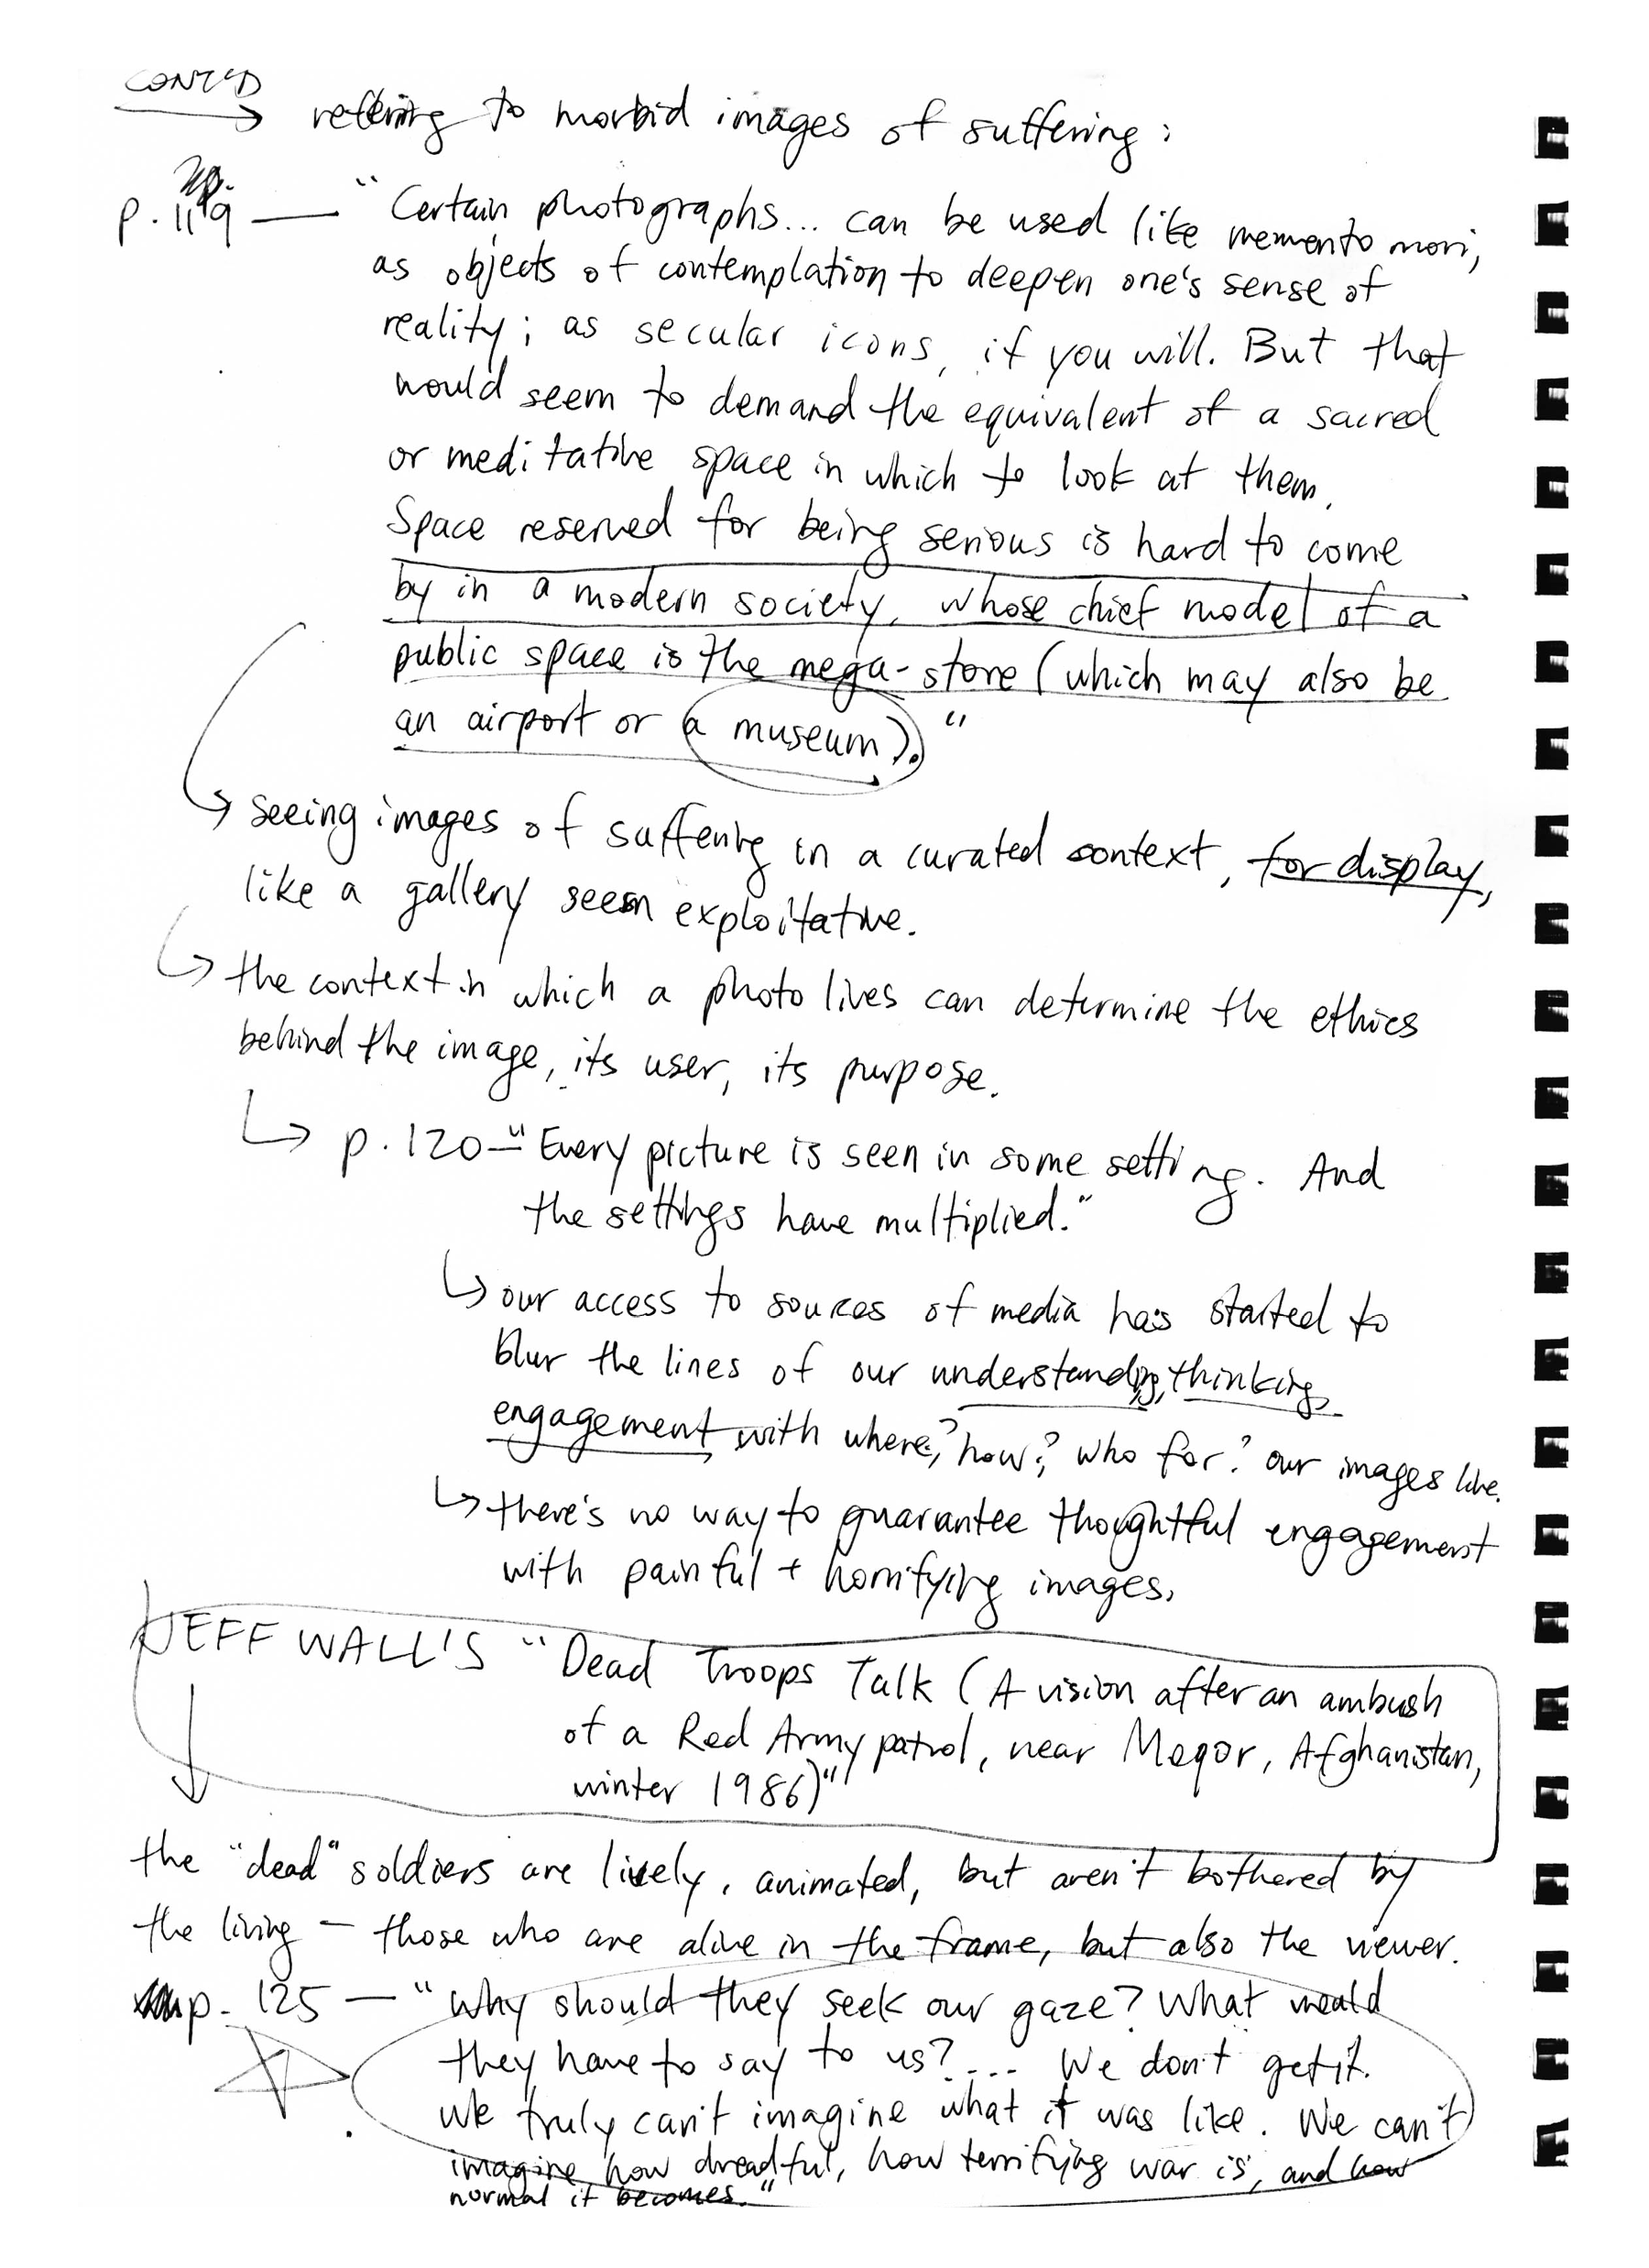 CONT'D
refering to morbid images of suffering:
p. 119 — "Certain photographs... can be used like memento mori,
as objects of contemplation to deepen one's sense of
reality; as secular icons, if you will. But that
would seem to demand the equivalent of a sacred
or meditative space in which to look at them.
Space reserved for being serious is hard to come
by in a modern society, whose chief model of a
public space is the mega-store (which may also be
an airport or a museum)."
seeing images of suffering in a curated context, for display,
like a gallery seem exploitative.
the context in which a photo lives can determine the ethics
behind the image, its user, its purpose.
p. 120 — "Every picture is seen in some setting. And
the settings have multiplied."
our access to sources of media has started to
blur the lines of our understanding, thinking,
engagement with where?, how?, who for? our images live.
there's no way to guarantee thoughtful engagement
with painful + horrifying images.
JEFF WALL'S "Dead Troops Talk (A vision after an ambush
of a Red Army patrol, near Moqor, Afghanistan,
winter 1986)"
the "dead" soldiers are lively, animated, but aren't bothered by
the living — those who are alive in the frame, but also the viewer.
p. 125 — "Why should they seek our gaze? What would
they have to say to us?... We don't get it.
We truly can't imagine what it was like. We can't
imagine how dreadful, how terrifying war is, and how
normal it becomes."